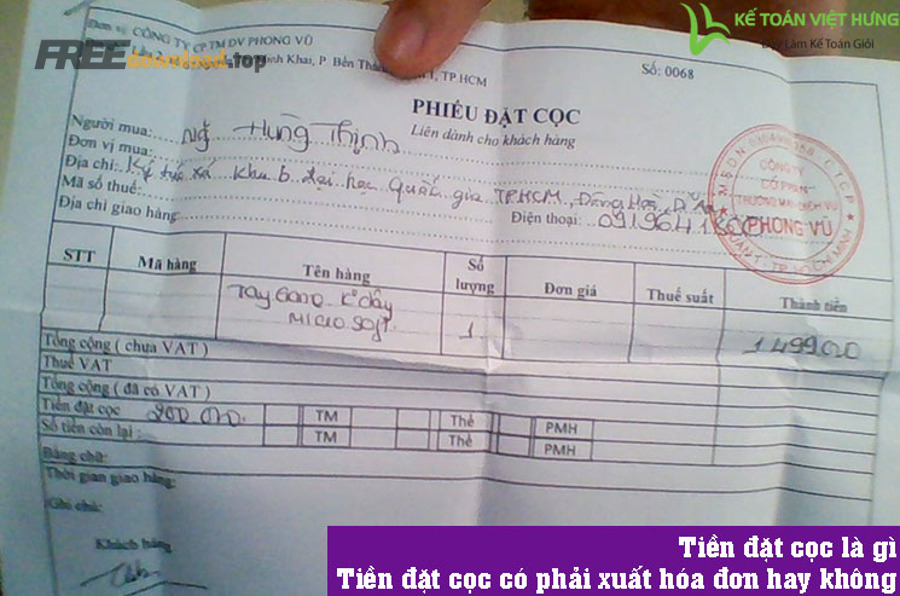 KẾ TOÁN VIỆT HƯNG
Dạy Làm Kế Toán Giỏi
FREEdownload.top
Đơn vị CÔNG TY CP TM DV PHONG VŨ
Minh Khai, P Bến TP.HCM
Số: 0068
PHIẾU ĐẶT CỌC
Liên dành cho khách hàng
Người mua: Hưng Thịnh
Đơn vị mua:
Địa chỉ: Ký túc xá khu b đại học Quốc gia TPHCM, Đông Hòa, Dĩ An
Mã số thuế:
Điện thoại:
Địa chỉ giao hàng
CÔNG TY
CỔ PHẦN
THƯƠNG MẠI DỊCH VỤ
PHONG VŨ
STT Mã hàng Tên hàng Số lượng Đơn giá Thuế suất Thành tiền
Tay Game K° dây
Microsoft. 1 1499000
Tổng cộng ( chưa VAT )
Thuế VAT
Tổng cộng ( đã có VAT )
Tiền đặt cọc 200.000. TM Thẻ PMH
Số tiền còn lại : TM Thẻ PMH
Bằng chữ:
Thời gian giao hàng:
Ghi chú:
Khách hàng
Tiền đặt cọc là gì
Tiền đặt cọc có phải xuất hóa đơn hay không